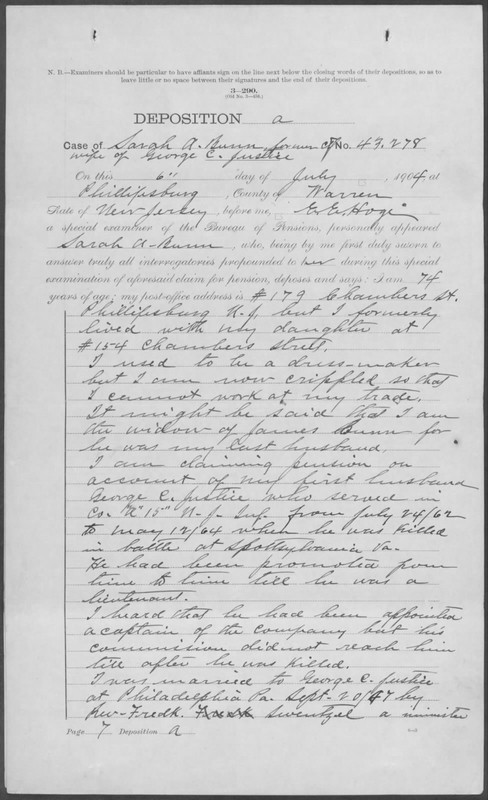 N. B.—Examiners should be particular to have affiants sign on the line next below the closing words of their depositions, so as to
leave little or no space between their signatures and the end of their depositions.
3—290.
DEPOSITION a
Case of Sarah A. Bunn, former No. 43,278
wife of George C. Justice
On this 6" day of July, 1904 at
Phillipsburg, County of Warren
State of New Jersey, before me, E. E.
a special examiner of the Bureau of Pensions, personally appeared
Sarah A. Bunn, who, being by me first duly sworn to
answer truly all interrogatories propounded to her during this special
examination of aforesaid claim for pension, deposes and says: I am 74
years of age; my post-office address is #179 Chambers St.
Phillipsburg N.J. but I formerly
lived with my daughter at
#154 Chambers street.
I used to be a dress-maker
but I am now crippled so that
I cannot work at my trade.
It might be said that I am
the widow of James Bunn for
he was my last husband.
I am claiming pension on
account of my first husband
George C. Justice who served in
Co. "K" 15" N. J. Inf. from July 24/62
to May 12/64 when he was killed
in battle at Spottsylvania Va.
He had been promoted from
time to time till he was a
lieutenant.
I heard that he had been appointed
a captain of the company but his
commission did not reach him
till after he was killed.
I was married to George C. Justice
at Philadelphia Pa. Sept. 20/47 by
Rev. Fredk. Swentzel a minister
Page 7 Deposition a